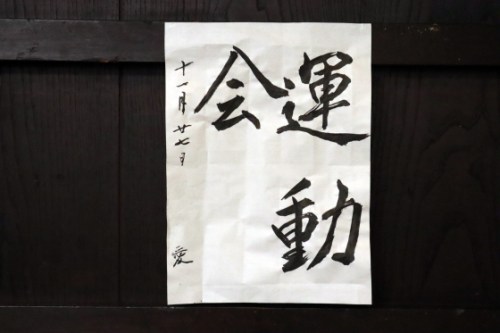 運動
会
十一月廿七日
愛